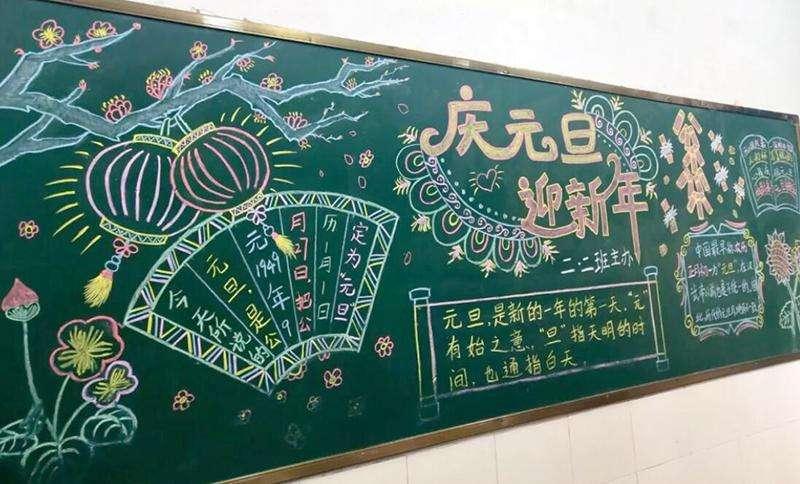 庆元旦
迎新年
二.二班主办
今天所说的
元旦,是公
元1949年9
月27日,把公
历一月一日
定为"元旦"
元旦,是新的一年的第一天,"元"
有始之意,"旦"指天明的时
间,也通指白天.
中国最早